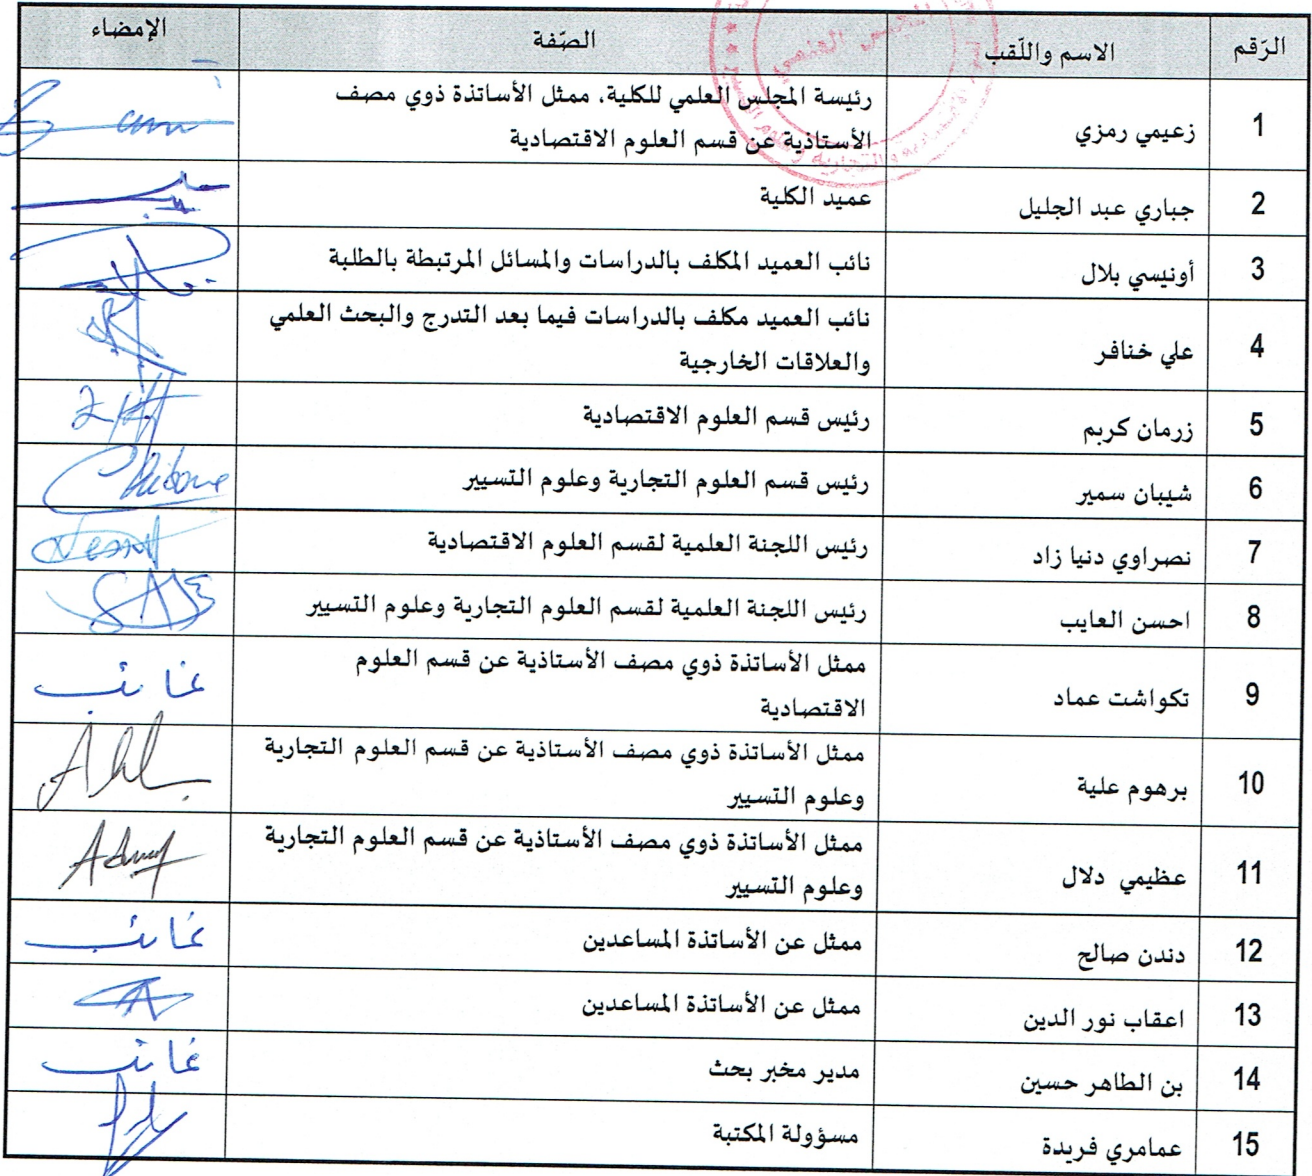 الرّقم الاسم واللّقب الصّفة الإمضاء
1 زعيمي رمزي رئيسة المجلس العلمي للكلية، ممثل الأساتذة ذوي مصف
الأستاذية عن قسم العلوم الاقتصادية
2 جباري عبد الجليل عميد الكلية
3 أونيسي بلال نائب العميد المكلف بالدراسات والمسائل المرتبطة بالطلبة
4 علي خنافر نائب العميد مكلف بالدراسات فيما بعد التدرج والبحث العلمي
والعلاقات الخارجية
5 زرمان كريم رئيس قسم العلوم الاقتصادية
6 شيبان سمير رئيس قسم العلوم التجارية وعلوم التسيير
7 نصراوي دنيا زاد رئيس اللجنة العلمية لقسم العلوم الاقتصادية
8 احسن العايب رئيس اللجنة العلمية لقسم العلوم التجارية وعلوم التسيير
9 تكواشت عماد ممثل الأساتذة ذوي مصف الأستاذية عن قسم العلوم غائب
الاقتصادية
10 برهوم علية ممثل الأساتذة ذوي مصف الأستاذية عن قسم العلوم التجارية
وعلوم التسيير
11 عظيمي دلال ممثل الأساتذة ذوي مصف الأستاذية عن قسم العلوم التجارية
وعلوم التسيير
12 دندن صالح ممثل عن الأساتذة المساعدين غائب
13 اعقاب نور الدين ممثل عن الأساتذة المساعدين
14 بن الطاهر حسين مدير مخبر بحث غائب
15 عمامري فريدة مسؤولة المكتبة